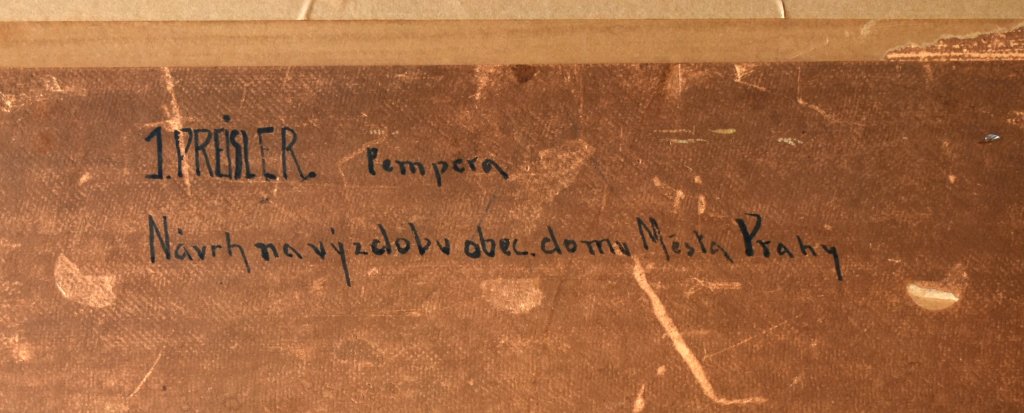 J. PREISLER. Tempera
Návrh na výzdobu obec. domu Města Prahy